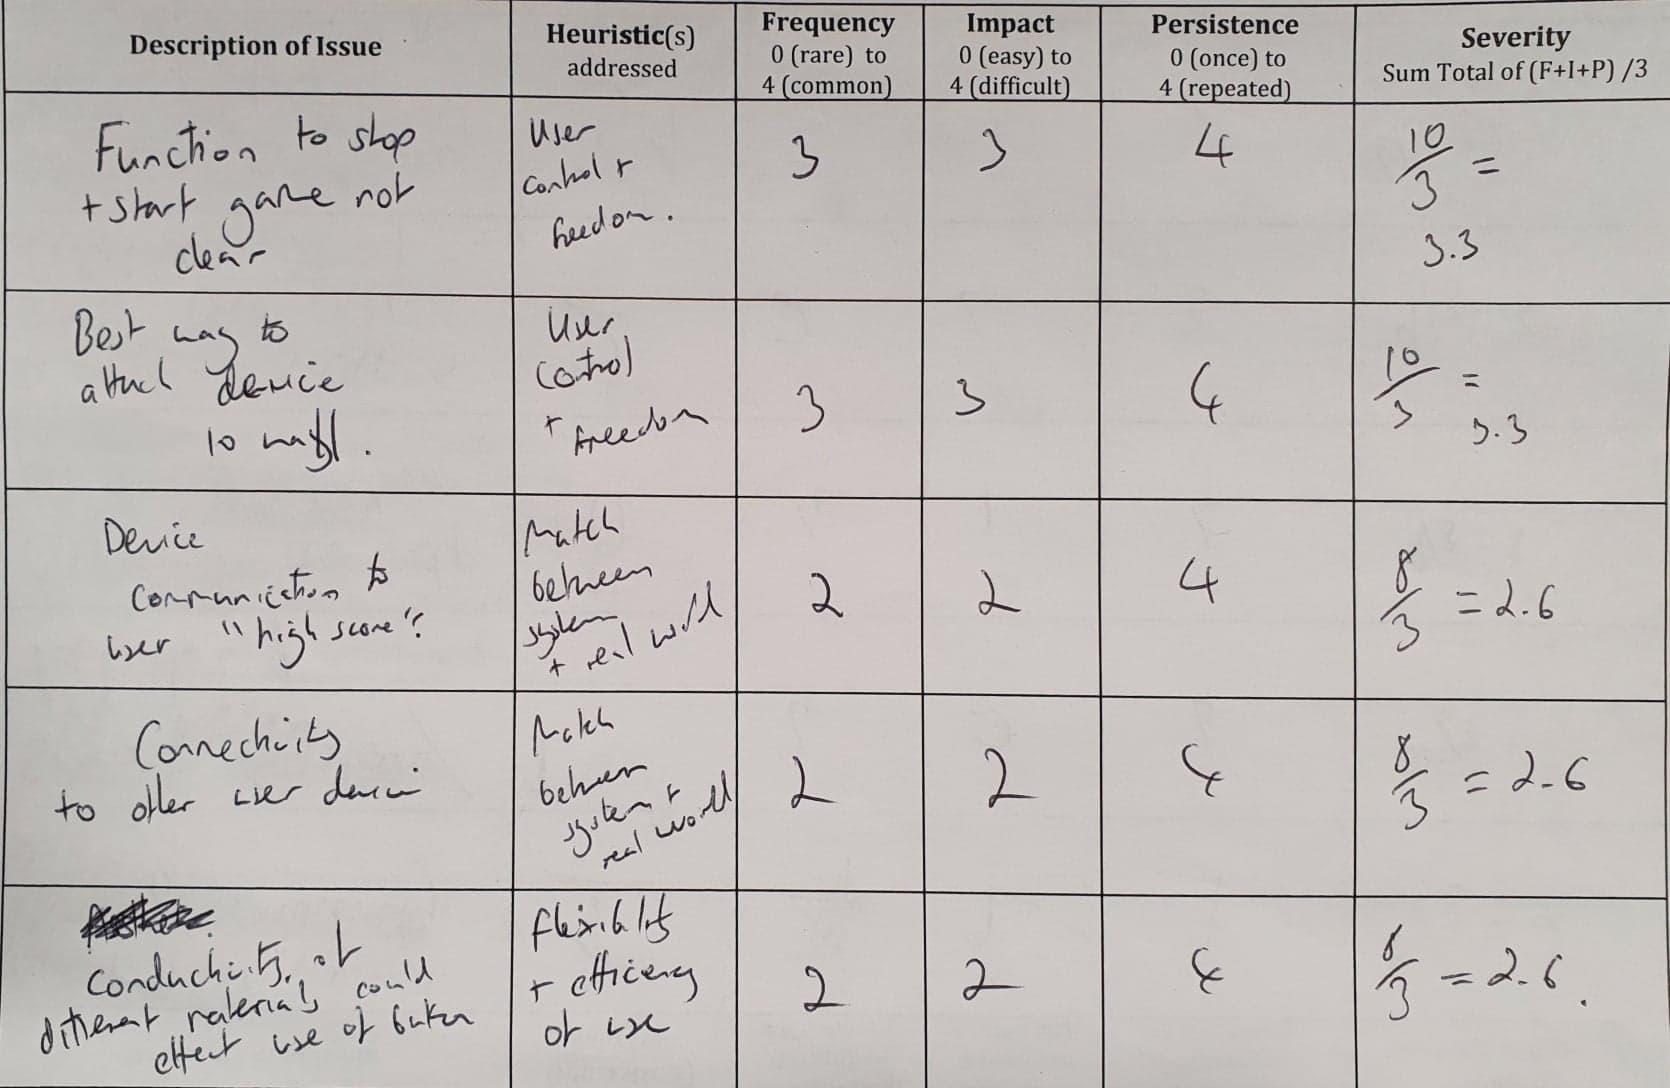 Description of Issue
Heuristic(s)
addressed
Frequency
0 (rare) to
4 (common)
Impact
0 (easy) to
4 (difficult)
Persistence
0 (once) to
4 (repeated)
Severity
Sum Total of (F+I+P) /3
Function to stop
+ start game not
clear
User
control +
freedom.
3
3
4
10/3 =
3.3
Best way to
attach device
to
User
Control
+ freedom
3
3
4
10/3 =
3.3
Device
Communication to
user "high score"?
Match
between
system
+ real world
2
2
4
8/3 = 2.6
Connectivity
to other user device
Match
between
system +
real world
2
2
4
8/3 = 2.6
Conductivity of
different materials could
effect use of button
flexibility
+ efficiency
of use
2
2
4
8/3 = 2.6.